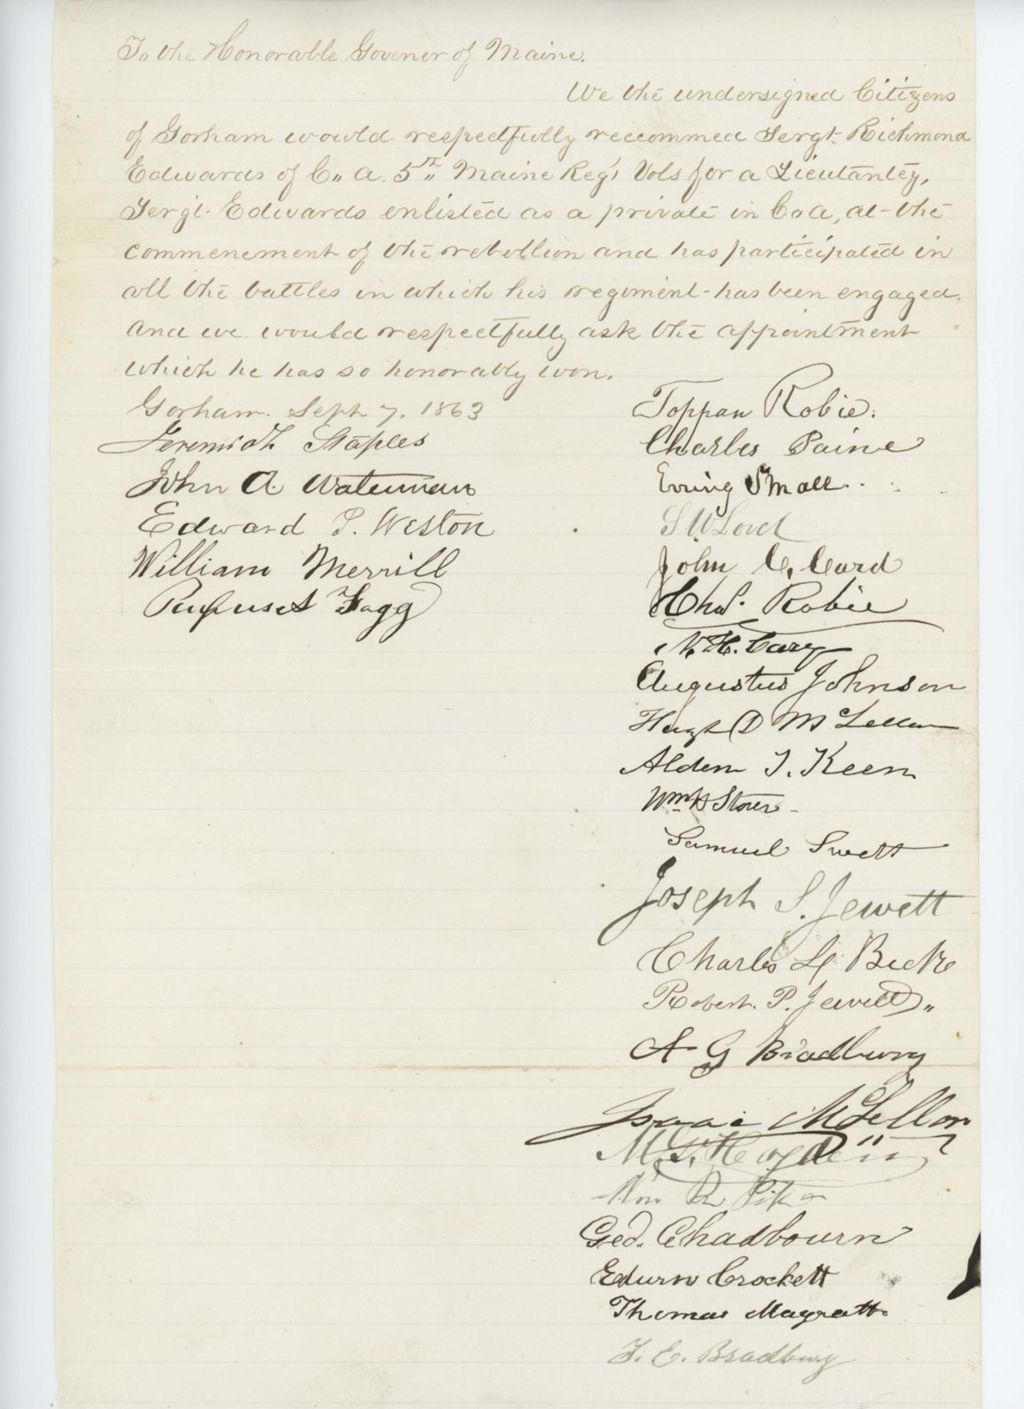 To the Honorable Govenor of Maine.
We the undersigned Citizens
of Gorham would respectfully reccommed Sergt. Richmond
Edwards of C,, A. 5th,, Maine Reg't Vols for a Lieutantcy,
Sergt. Edwards enlisted as a private in Co A, at the
commencment of the rebellion and has participated in
all the battles in which his regiment has been engaged.
And we would respectfully ask the appointment
which he has so honorably won.
Gorham. Sept 7. 1863
Jeremiah Staples
John A. Waterman
Edward P. Weston
William Merrill
Rufus A Fogg
Toppan Robie.
Charles Paine
Irving Small
John C. Card
Chas. Robie
Augustus Johnson
Hugh D McLellan
Alden T. Keen
Wm H Stover
Samuel Swett
Joseph S. Jewett
Charles
Robert. P. Jewett,,
A G Bradbury
Isaac McLellan
Geo. Chadbourn
Edwin Crockett
Thomas Magrath
F. E. Bradbury